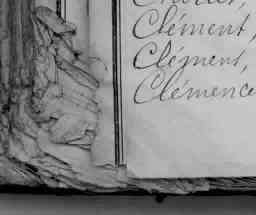 Clément,
Clément,
Clémence